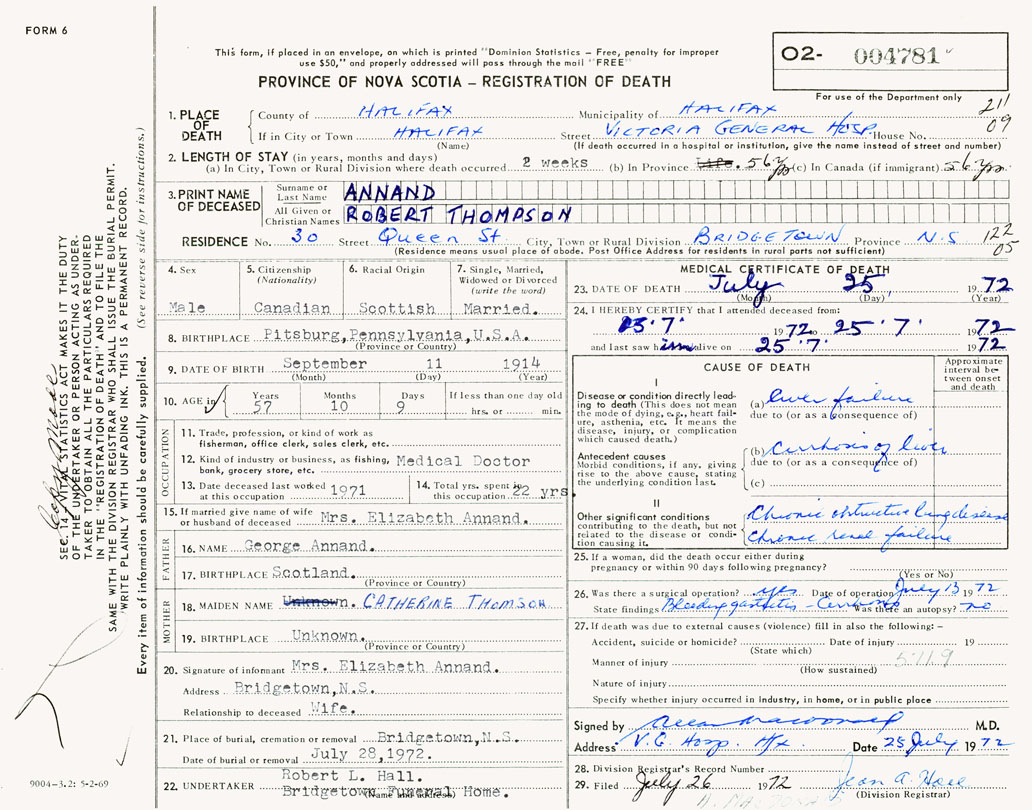 FORM 6
This form, if placed in an envelope, on which is printed "Dominion Statistics – Free, penalty for improper
use $50," and properly addressed will pass through the mail "FREE"
PROVINCE OF NOVA SCOTIA – REGISTRATION OF DEATH
02- 004781
For use of the Department only
211
09
1. PLACE OF DEATH
County of HALIFAX Municipality of HALIFAX
If in City or Town HALIFAX Street VICTORIA GENERAL HOSP. House No.
(Name) (If death occurred in a hospital or institution, give the name instead of street and number)
2. LENGTH OF STAY (in years, months and days)
(a) In City, Town or Rural Division where death occurred 2 weeks (b) In Province Life. 56 yrs (c) In Canada (if immigrant) 56 yrs.
3. PRINT NAME OF DECEASED
Surname or Last Name ANNAND
All Given or Christian Names ROBERT THOMPSON
RESIDENCE No. 30 Street Queen St City, Town or Rural Division BRIDGETOWN Province N.S 122
05
(Residence means usual place of abode. Post Office Address for residents in rural parts not sufficient)
4. Sex
Male
5. Citizenship
(Nationality)
Canadian
6. Racial Origin
Scottish
7. Single, Married,
Widowed or Divorced
(write the word)
Married.
8. BIRTHPLACE Pitsburg, Pennsylvania, U.S.A.
(Province or Country)
9. DATE OF BIRTH September 11 1914
(Month) (Day) (Year)
10. AGE in Years Months Days If less than one day old
57 10 9 hrs. or min.
OCCUPATION
11. Trade, profession, or kind of work as
fisherman, office clerk, sales clerk, etc.
12. Kind of industry or business, as fishing, Medical Doctor
bank, grocery store, etc.
13. Date deceased last worked
at this occupation 1971
14. Total yrs. spent in
this occupation 22 yrs.
15. If married give name of wife
or husband of deceased Mrs. Elizabeth Annand.
FATHER
16. NAME George Annand.
17. BIRTHPLACE Scotland.
(Province or Country)
MOTHER
18. MAIDEN NAME Unknown. CATHERINE THOMSON
19. BIRTHPLACE Unknown.
(Province or Country)
20. Signature of informant Mrs. Elizabeth Annand.
Address Bridgetown, N.S.
Relationship to deceased Wife.
21. Place of burial, cremation or removal Bridgetown, N.S.
Date of burial or removal July 28, 1972.
22. UNDERTAKER Robert L. Hall.
Bridgetown Funeral Home.
(Name and address)
MEDICAL CERTIFICATE OF DEATH
23. DATE OF DEATH July 25, 1972
(Month) (Day) (Year)
24. I HEREBY CERTIFY that I attended deceased from:
'7' 1972 to 25 '7' 1972
and last saw him alive on 25 '7' 1972
CAUSE OF DEATH
Approximate
interval be-
tween onset
and death
I
Disease or condition directly lead-
ing to death (This does not mean
the mode of dying, e.g., heart fail-
ure, asthenia, etc. It means the
disease, injury, or complication
which caused death.)
(a) liver failure
due to (or as a consequence of)
Antecedent causes
Morbid conditions, if any, giving
rise to the above cause, stating
the underlying condition last.
(b) Cirrhosis of liver
due to (or as a consequence of)
(c)
II
Other significant conditions
contributing to the death, but not
related to the disease or condi-
tion causing it.
Chronic obstructive lung disease
Chronic renal failure
25. If a woman, did the death occur either during
pregnancy or within 90 days following pregnancy?
(Yes or No)
26. Was there a surgical operation? yes Date of operation July 13 1972
State findings Bleeding gastritis – Cirrhosis Was there an autopsy? no
27. If death was due to external causes (violence) fill in also the following: –
Accident, suicide or homicide? Date of injury 19
(State which)
Manner of injury 5719
(How sustained)
Nature of injury
Specify whether injury occurred in industry, in home, or in public place
Signed by Allan Macdonald M.D.
Address V.G. Hosp. Hfx. Date 25 July 1972
28. Division Registrar's Record Number
29. Filed July 26 1972 Jean A. Hall
(Division Registrar)
SEC. 14 VITAL STATISTICS ACT MAKES IT THE DUTY
OF THE UNDERTAKER OR PERSON ACTING AS UNDER-
TAKER TO OBTAIN ALL THE PARTICULARS REQUIRED
IN THE "REGISTRATION OF DEATH" AND TO FILE THE
SAME WITH THE DIVISION REGISTRAR WHO SHALL ISSUE THE BURIAL PERMIT.
WRITE PLAINLY WITH UNFADING INK. THIS IS A PERMANENT RECORD.
Every item of information should be carefully supplied. (See reverse side for instructions.)
9004-3.2: 5-2-69